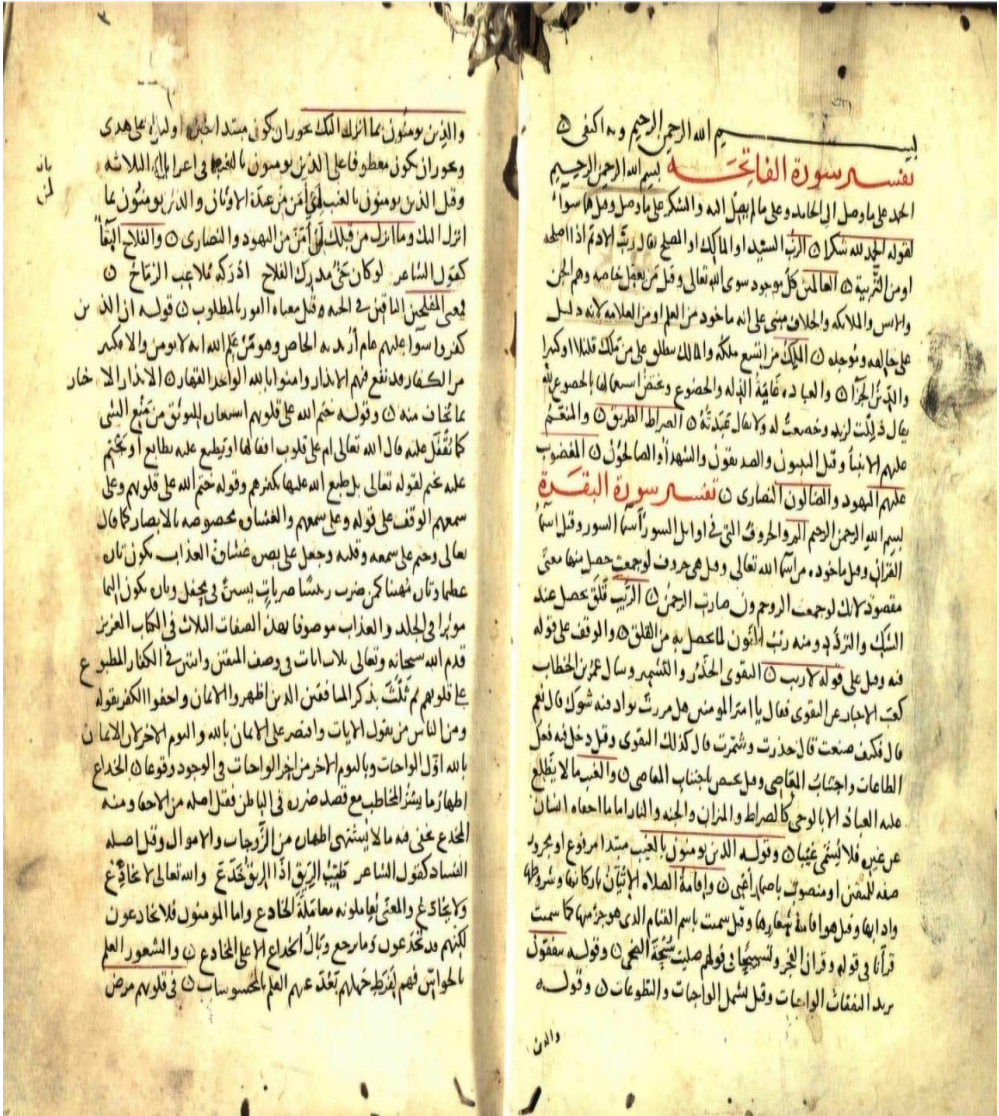 بسم الله الرحمن الرحيم وبه اكتفى
تفسير سورة الفاتحة بسم الله الرحمن الرحيم
الحمد على ما وصل الى الحامد وعلى ما لم يصل اليه والشكر على ما وصل وقيل هما سواء
لقوله الحمد لله شكرا الرب السيد او المالك او المصلح يقال رب الاديم اذا اصلحه
او من التربية العالمين كل موجود سوى الله تعالى وقيل من يعقل خاصة وهم الجن
والانس والملايكة والخلاف مبنى على انه ماخوذ من العلم او من العلامة لانه دليل
على خالقه وموجده الملك من اتسع ملكه والمالك يطلق على من ملك قليلا او كثيرا
والدين الجزا والعبادة غاية الذلة والخضوع
يقال ذللت لزيد وخضعت له ولا يقال عبدته الصراط الطريق والمنعم
عليهم الانبيا وقيل النبيون والصديقون والشهدا والصالحون المغضوب
عليهم اليهود والضالون النصارى تفسير سورة البقرة
بسم الله الرحمن الرحيم الم والحروف التي في اوايل السور اسما السور وقيل اسما
القران وقيل ماخوذة من اسما الله تعالى وقيل هي حروف لو جمعت حصل منها معنى
مقصود لانك لو جمعت الر وحم ون صارت الرحمن الريب قلق يحصل عند
الشك والتردد ومنه ريب المنون لما يحصل به من القلق والوقف على قوله
فيه وقيل على قوله لا ريب التقوى الحذر والتشمير وسال عمر بن الخطاب
كعب الاحبار عن التقوى فقال يا امير المومنين هل مررت بواد فيه شوك قال نعم
قال فكيف صنعت قال حذرت وشمرت قال كذلك التقوى وقد دخل فيه فعل
الطاعات واجتناب المعاصي وقيل يختص باجتناب المعاصي والغيب ما لا يطلع
عليه العباد الا بالوحي كالصراط والميزان والجنة والنار اما ما اخفاه انسان
عن غيره فلا يسمى غيبا وقوله الذين يومنون بالغيب مبتدا مرفوع او مجرور
صفة للمتقين او منصوب باضمار اعني واقامة الصلاة الاتيان باركانها وشروطها
وادابها وقيل هو اقامة وقيل سميت باسم القيام الذي هو جزء منها كما سميت
قرآنا في قوله وقران الفجر وتسبيحا في قولهم صليت سبحة الضحى وقوله ينفقون
يريد النفقات الواجبات وقيل يشمل الواجبات والتطوعات وقوله
والذين
والذين يومنون بما انزل اليك يجوز ان يكون مبتدا خبره اوليك على هدى
ويجوز ان يكون معطوفا على الذين يومنون بالغيب في اعرابه الثلاثة
وقيل الذين يومنون بالغيب اي من امن من عبدة الاوثان والذين يومنون بما
انزل اليك وما انزل من قبلك اي من امن من اليهود والنصارى والفلاح البقا
كقول الشاعر لو كان حي مدرك الفلاح ادركه ملاعب الرماح
فمعنى المفلحين الباقين في الجنة وقيل معناه الفوز بالمطلوب قوله ان الذين
كفروا سوا عليهم عام اريد به الخاص وهو من علم الله انه لا يومن والا فكثير
من الكفار قد نفع فيهم الانذار وامنوا بالله الواحد القهار الانذار الاخبار
بما يخاف منه وقوله ختم الله على قلوبهم استعارة للتوثق من منع الشي
كما يقفل عليه قال الله تعالى ام على قلوب اقفالها او يطبع عليه بطابع او يختم
عليه بختم لقوله تعالى بل طبع الله عليها بكفرهم وقوله ختم الله على قلوبهم وعلى
سمعهم الوقف على قوله وعلى سمعهم والغشاوة مخصوصة بالابصار كما قال
تعالى وختم على سمعه وقلبه وجعل على بصره غشاوة العذاب يكون تارة
عظيما وتارة مهينا كمن ضرب رئيسا ضربات يسيرة في محفل وتارة يكون اليما
موثرا في الجلد والعذاب موصوف بهذه الصفات الثلاث في الكتاب العزيز
قدم الله سبحانه وتعالى ثلاث ايات في وصف المتقين واثنتين في الكفار المطبوع
على قلوبهم ثم ثلث بذكر المنافقين الذين اظهروا الايمان واخفوا الكفر بقوله
ومن الناس من يقول الايات واقتصر على الايمان بالله واليوم الاخر لان الايمان
بالله اول الواجبات وباليوم الاخر من اخر الواجبات في الوجود وقوعا الخداع
اظهار ما يسر المخاطب مع قصد ضرره في الباطن فقيل اصله من الاخفا ومنه
المخدع يخفى فيه ما لا يشتهى اظهاره من الزوجات والاموال وقيل اصله
الفساد كقول الشاعر طيب الريق اذا الريق خدع والله تعالى لا يخادع
ولا يخادع والمعنى يعاملونه معاملة المخادع واما المومنون فلا يخادعون
لكنهم قد يخدعون وما يرجع وبال الخداع الا على المخادع والشعور العلم
بالحواس فهم لفرط جهلهم يفقد عنهم العلم بالمحسوسات في قلوبهم مرض